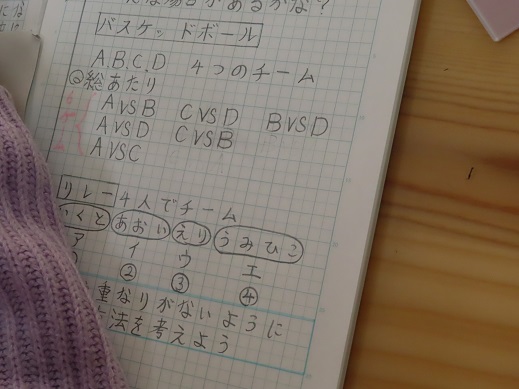 な場合があるかな?
バスケットボール
A.B.C.D 4つのチーム
総あたり
AVSB CVSD BVSD
AVSD CVSB
AVSC
リレー 4人でチーム
いくと あおい えり うみひこ
ア イ ウ エ
② ③ ④
重なりがないように
方法を考えよう